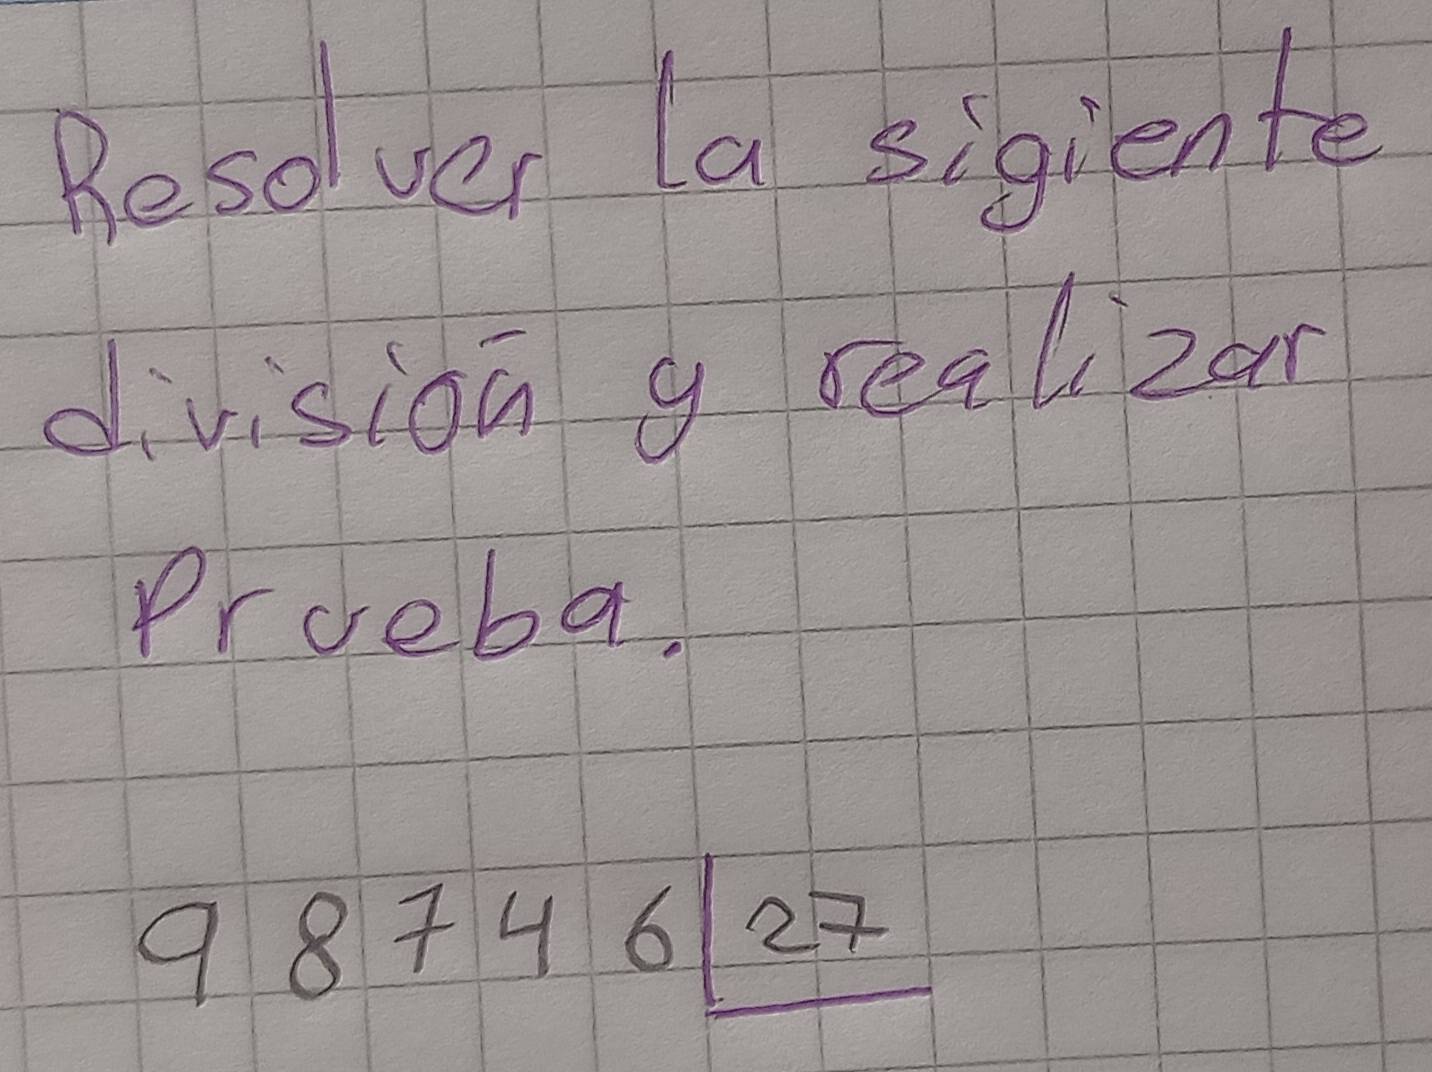 Resolver la sigiente
división y realizar
Prueba.
98746 27